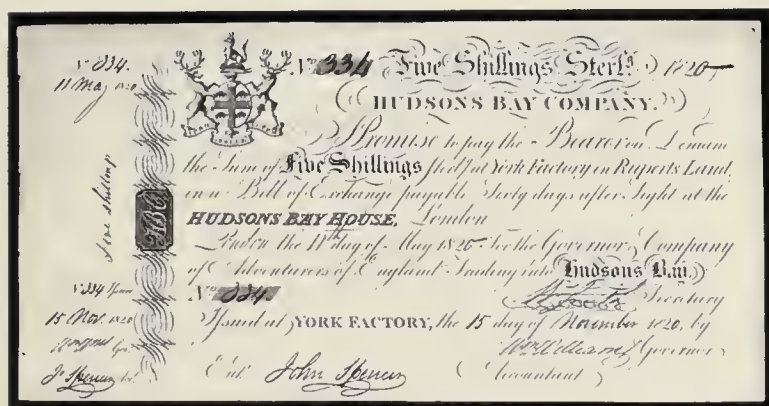 No. 334.
11 May 1820
Five shillings
HBC
No. 334
15 Nov. 1820
Jn. Spencer
PRO PELLE CUTEM
No. 334 Five Shillings Sterlg. 1820
HUDSONS BAY COMPANY.
I Promise to pay the Bearer on Demand
the Sum of Five Shillings Sterlg. at York Factory in Ruperts Land,
in a Bill of Exchange payable Sixty days after Sight at the
HUDSONS BAY HOUSE, London
London the 11th day of May 1820 For the Governor & Company
of Adventurers of England Trading into Hudsons Bay.
No. 334 Secretary
Issued at YORK FACTORY, the 15 day of November 1820, by
Wm Williams Governor
Entd. John Spencer Accountant